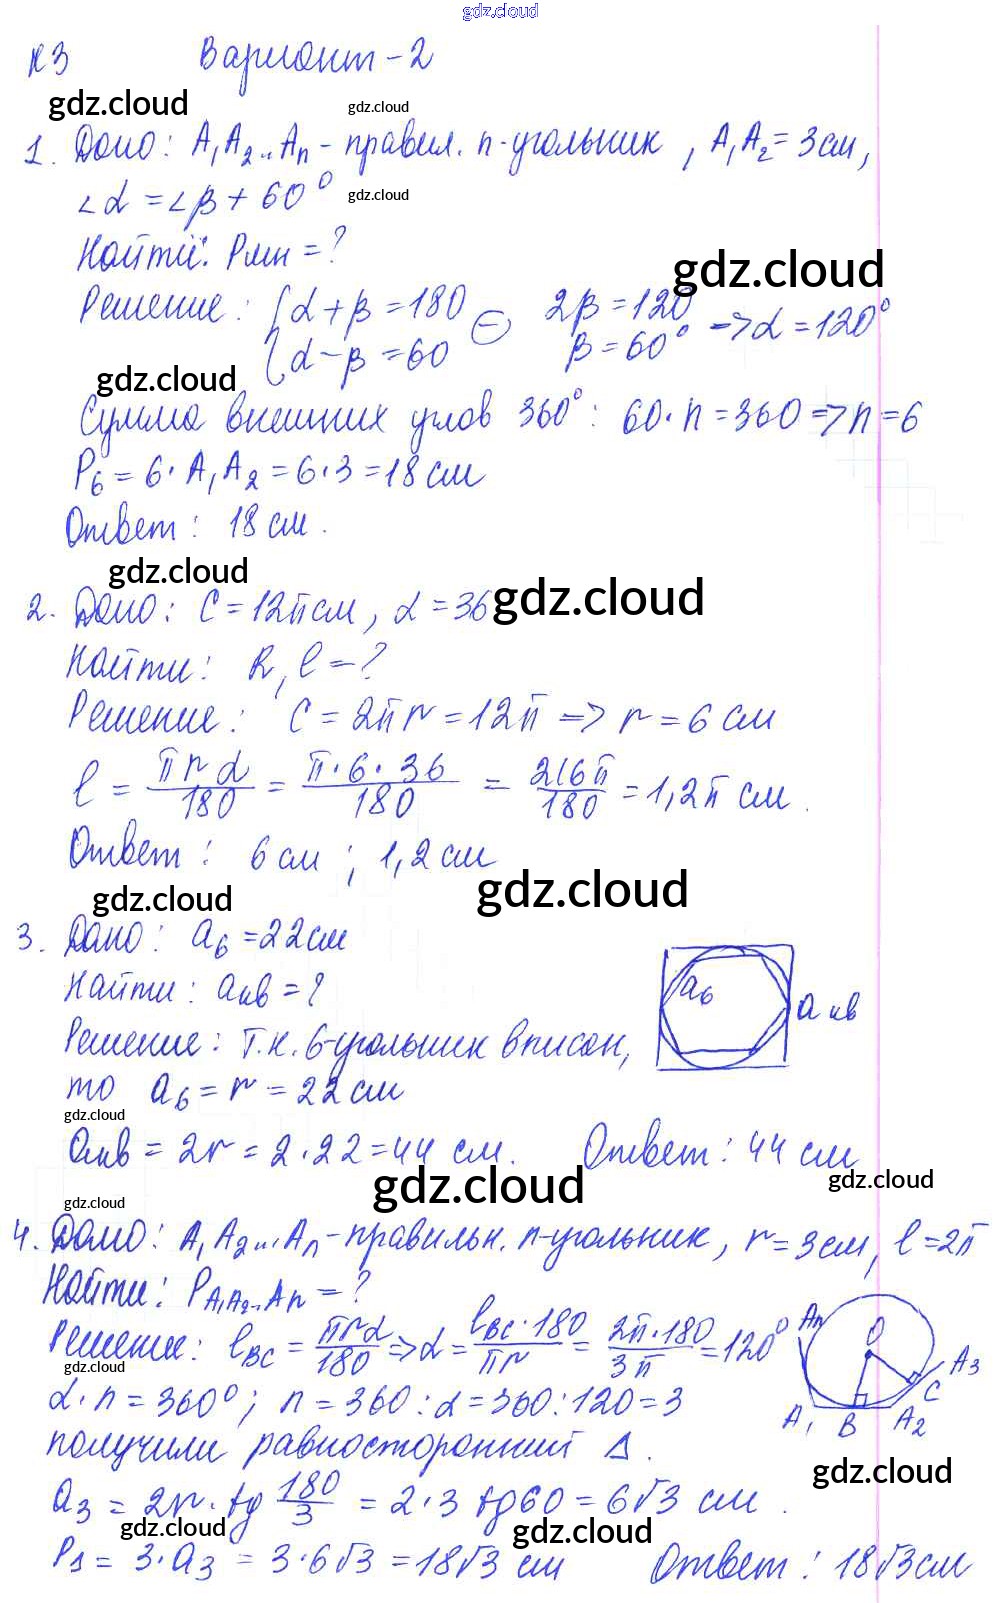 gdz.cloud
К3 Вариант-2
gdz.cloud gdz.cloud
1. Дано: A₁A₂...Aₙ - правил. n-угольник, A₁A₂ = 3см,
∠α = ∠β + 60° gdz.cloud
Найти: Pмн = ?
gdz.cloud
Решение: { α + β = 180 ⊖ 2β = 120 => α = 120°
α - β = 60 β = 60°
gdz.cloud
Сумма внешних углов 360°: 60·n = 360 => n = 6
P₆ = 6·A₁A₂ = 6·3 = 18 см
Ответ: 18 см.
gdz.cloud
2. Дано: C = 12π см, α = 36 gdz.cloud
Найти: R, l = ?
Решение: C = 2πr = 12π => r = 6 см
l = πrα/180 = π·6·36/180 = 216π/180 = 1,2π см.
Ответ: 6 см; 1,2 см
gdz.cloud gdz.cloud
3. Дано: a₆ = 22см
Найти: aкв = ?
a₆ aкв
Решение: Т.к. 6-угольник вписан,
то a₆ = r = 22 см
gdz.cloud
aкв = 2r = 2·22 = 44 см. Ответ: 44 см
gdz.cloud gdz.cloud
gdz.cloud
4. Дано: A₁A₂...Aₙ - правильн. n-угольник, r = 3см, l = 2π
Найти: P A₁A₂...Aₙ = ?
Решение: lBC = πrα/180 => α = lBC·180/πr = 2π·180/3π = 120°
Aₙ O A₃ C A₁ B A₂
gdz.cloud
α·n = 360°; n = 360:α = 360:120 = 3
получили равносторонний Δ.
gdz.cloud
a₃ = 2r·tg 180/3 = 2·3 tg60 = 6√3 см.
gdz.cloud gdz.cloud
P₁ = 3·a₃ = 3·6√3 = 18√3 см Ответ: 18√3см